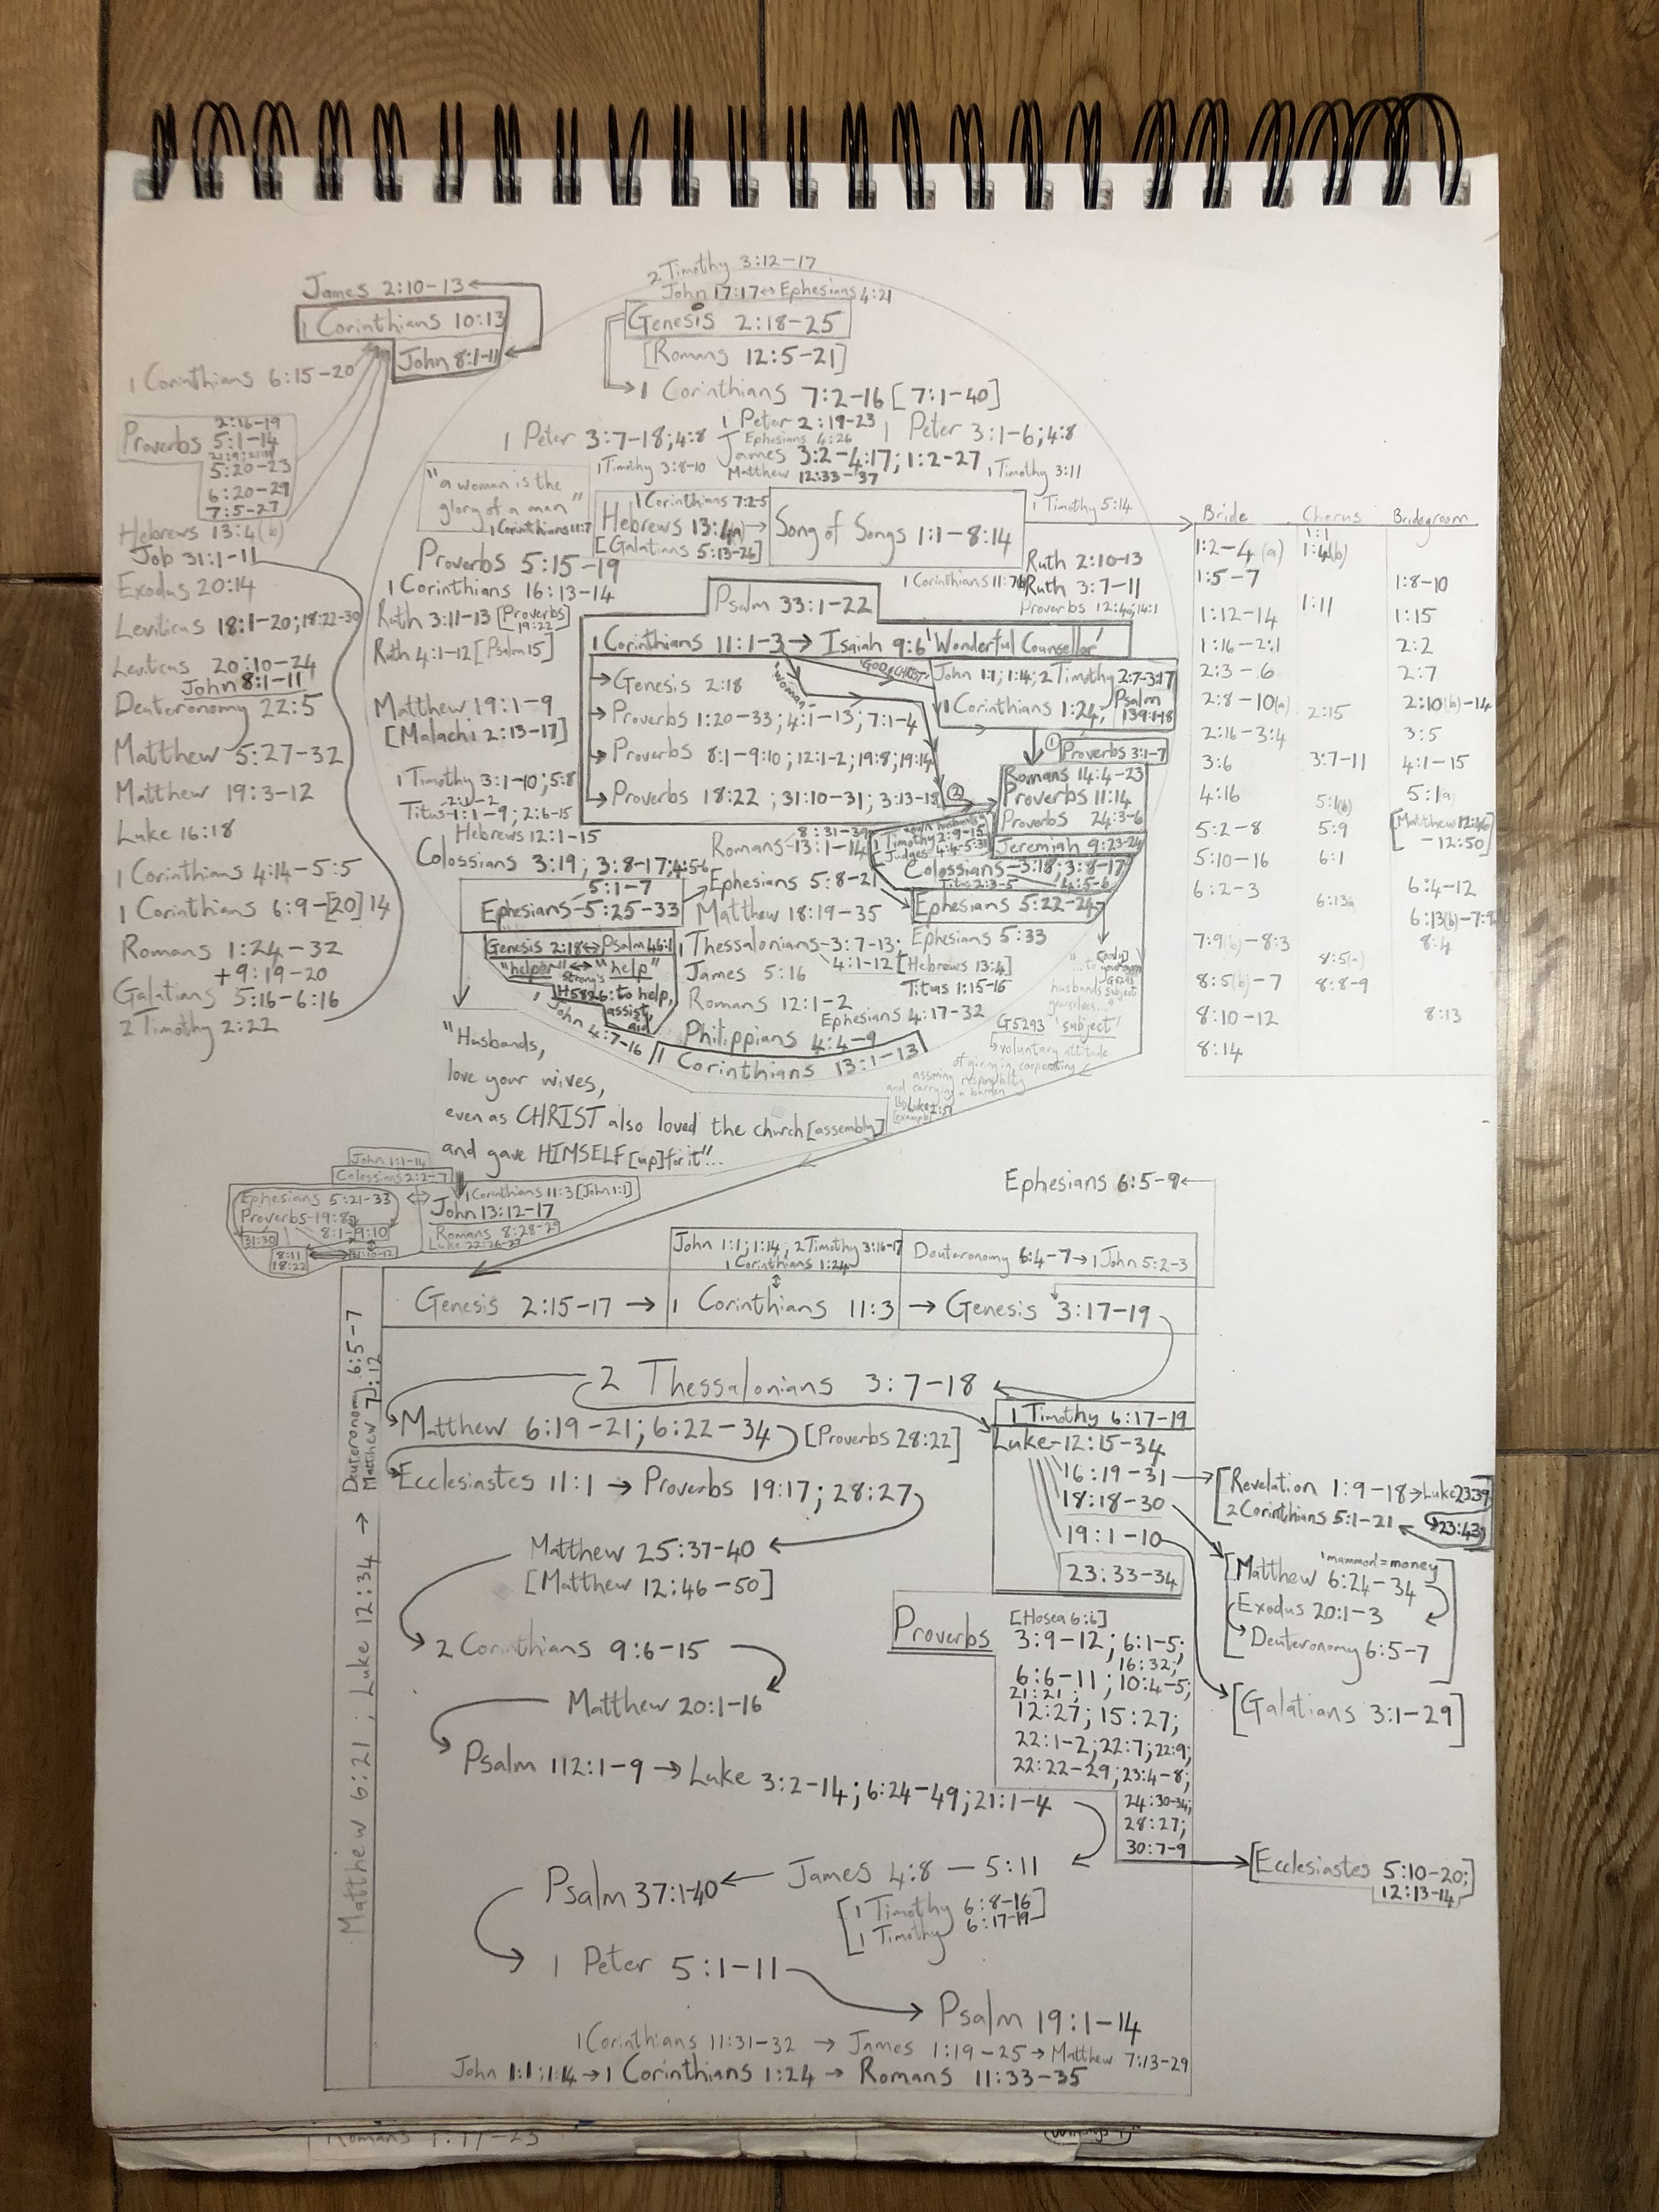 2 Timothy 3:12-17
John 17:17 ↔ Ephesians 4:21
Genesis 2:18-25
[Romans 12:5-21]
→ 1 Corinthians 7:2-16 [7:1-40]
James 2:10-13
1 Corinthians 10:13
John 8:1-11
1 Corinthians 6:15-20
Proverbs
2:16-19
5:1-14
5:20-23
6:20-29
7:5-27
Hebrews 13:4(b)
Job 31:1-11
Exodus 20:14
Leviticus 18:1-20; 18:22-30
Leviticus 20:10-24
John 8:1-11
Deuteronomy 22:5
Matthew 5:27-32
Matthew 19:3-12
Luke 16:18
1 Corinthians 4:14-5:5
1 Corinthians 6:9-[20]14
Romans 1:24-32
+9:19-20
Galatians 5:16-6:16
2 Timothy 2:22
1 Peter 3:7-18; 4:8
1 Peter 2:19-23
1 Peter 3:1-6; 4:8
Ephesians 4:26
James 3:2-4:17; 1:2-27
1 Timothy 3:8-10
Matthew 12:33-37
1 Timothy 3:11
"a woman is the
glory of a man"
1 Corinthians 11:7
1 Corinthians 7:2-5
Hebrews 13:4(a) →
[Galatians 5:13-26]
Song of Songs 1:1-8:14
1 Timothy 5:14
Proverbs 5:15-19
1 Corinthians 16:13-14
Ruth 3:11-13 [Proverbs 19:22]
Ruth 4:1-12 [Psalm 15]
Matthew 19:1-9
[Malachi 2:13-17]
1 Timothy 3:1-10; 5:8
2:1-2
Titus 1:1-9; 2:6-15
Hebrews 12:1-15
Colossians 3:19; 3:8-17; 4:5-6
5:1-7
Ephesians 5:25-33
Ruth 2:10-13
1 Corinthians 11:7(b)
Ruth 3:7-11
Proverbs 12:4(a); 14:1
Psalm 33:1-22
1 Corinthians 11:1-3 → Isaiah 9:6 'Wonderful Counsellor'
'woman'
'GOD & CHRIST'
→ Genesis 2:18
→ Proverbs 1:20-33; 4:1-13; 7:1-4
→ Proverbs 8:1-9:10; 12:1-2; 19:8; 19:14
→ Proverbs 18:22; 31:10-31; 3:13-18
John 1:1; 1:14; 2 Timothy 2:7-3:17
1 Corinthians 1:24,
Psalm
139:1-18
① Proverbs 3:1-7
②
Romans 14:4-23
Proverbs 11:14
Proverbs 24:3-6
Jeremiah 9:23-24
8:31-39
Romans 13:1-14
"own husbands"
1 Timothy 2:9-15
Judges 4:4-5:31
Colossians 3:18; 3:8-17
Titus 2:3-5
4:5-6
Ephesians 5:22-24
Ephesians 5:8-21
Matthew 18:19-35
1 Thessalonians 3:7-13;
4:1-12 [Hebrews 13:4]
Ephesians 5:33
James 5:16
Titus 1:15-16
Romans 12:1-2
Ephesians 4:17-32
Philippians 4:4-9
1 Corinthians 13:1-13
Genesis 2:18 ↔ Psalm 46:1
"helper" ↔ "help"
Strong's
H5826: to help,
assist,
aid
John 4:7-16
husbands subject
yourselves..."
G5293 'subject'
↳ voluntary attitude
of giving in, cooperating
assuming responsibility
and carrying a burden
Luke 2:51
[example]
"Husbands,
love your wives,
even as CHRIST also loved the church [assembly]
and gave HIMSELF [up] for it"...
Bride Chorus Bridegroom
1:1
1:2-4(a) 1:4(b)
1:5-7 1:8-10
1:12-14 1:11 1:15
1:16-2:1 2:2
2:3-6 2:7
2:8-10(a) 2:15 2:10(b)-14
2:16-3:4 3:5
3:6 3:7-11 4:1-15
4:16 5:1(b) 5:1a
5:2-8 5:9 [Matthew 12:46
-12:50]
5:10-16 6:1
6:2-3 6:13a 6:4-12
6:13(b)-7:9a
7:9(b)-8:3 8:4
8:5(b)-7 8:5(a)
8:8-9
8:10-12 8:13
8:14
John 1:1-14
Colossians 2:2-7
Ephesians 5:21-33 ↔
Proverbs 19:8
31:30 8:1-9:10
8:11 ↔ 31:10-12
18:22
1 Corinthians 11:3 [John 1:1]
John 13:12-17
Romans 8:28-29
Luke 22:26-27
Ephesians 6:5-9 ←
John 1:1; 1:14; 2 Timothy 3:16-17
1 Corinthians 1:24
Deuteronomy 6:4-7 → 1 John 5:2-3
Genesis 2:15-17 → 1 Corinthians 11:3 → Genesis 3:17-19
Matthew 6:21; Luke 12:34 → Deuteronomy 6:5-7
Matthew 7:12
2 Thessalonians 3:7-18
Matthew 6:19-21; 6:22-34 [Proverbs 28:22]
Ecclesiastes 11:1 → Proverbs 19:17; 28:27
Matthew 25:37-40
[Matthew 12:46-50]
2 Corinthians 9:6-15
Matthew 20:1-16
Psalm 112:1-9 → Luke 3:2-14; 6:24-49; 21:1-4
James 4:8 - 5:11
Psalm 37:1-40 ←
[1 Timothy 6:8-16]
[1 Timothy 6:17-19]
1 Peter 5:1-11
Psalm 19:1-14
1 Corinthians 11:31-32 → James 1:19-25 → Matthew 7:13-29
John 1:1; 1:14 → 1 Corinthians 1:24 → Romans 11:33-35
1 Timothy 6:17-19
Luke 12:15-34
16:19-31 →
18:18-30
19:1-10
23:33-34
[Revelation 1:9-18 → Luke 23:39
2 Corinthians 5:1-21 23:43]
'mammon' = money
[Matthew 6:24-34
Exodus 20:1-3
Deuteronomy 6:5-7]
[Galatians 3:1-29]
Proverbs
[Hosea 6:6]
3:9-12; 6:1-5;
16:32;
6:6-11; 10:4-5;
21:21;
12:27; 15:27;
22:1-2; 22:7; 22:9;
22:22-29; 23:4-8;
24:30-34;
28:27;
30:7-9
[Ecclesiastes 5:10-20;
12:13-14]